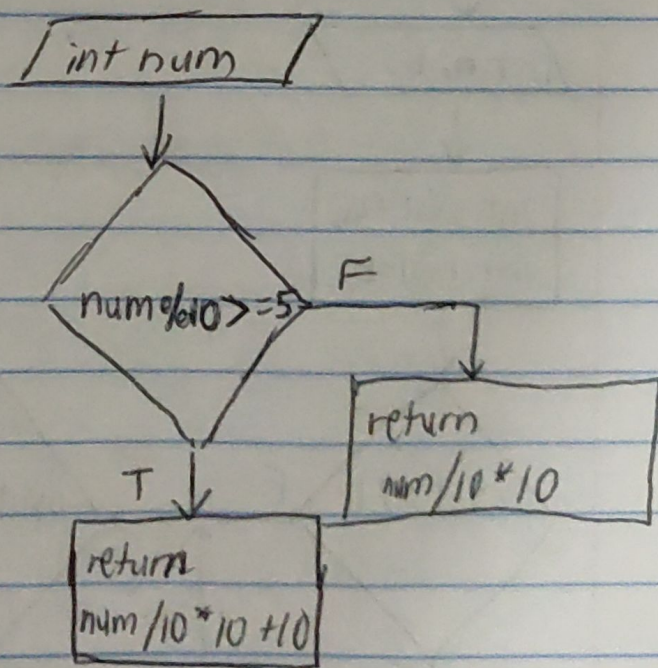 int num
num%10>=5
F
return
num/10*10
T
return
num/10*10+10